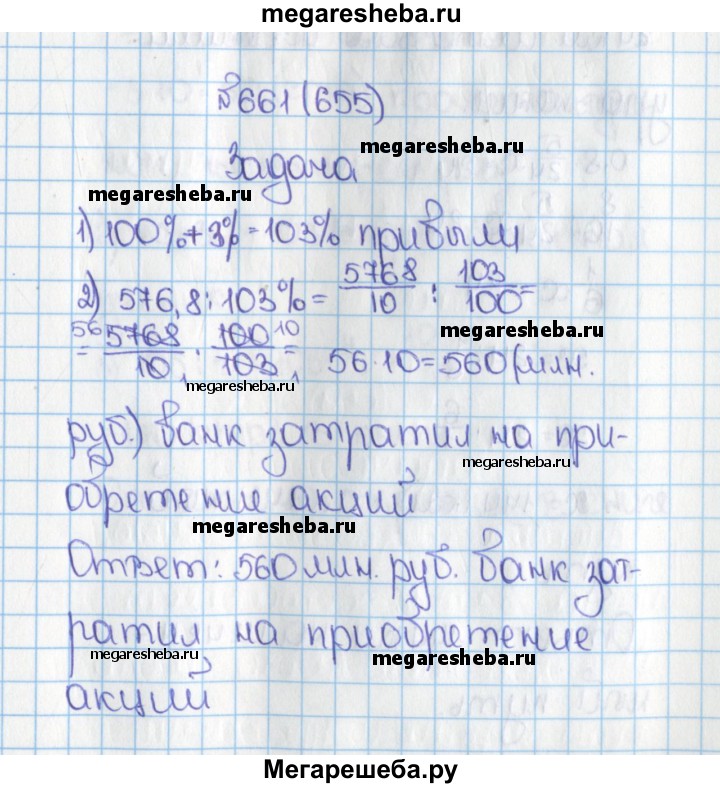 megaresheba.ru
№661 (655)
megaresheba.ru
Задача
megaresheba.ru
1) 100%+3%=103% прибыли
2) 576,8:103%= 5768/10 : 103/100 =
megaresheba.ru
= 56 5768/10 1 · 100 10/103 1 = 56·10=560 (млн.
megaresheba.ru
руб.) банк затратил на при-
megaresheba.ru
обретение акций
megaresheba.ru
Ответ: 560 млн. руб. банк зат-
megaresheba.ru
ратил на приобретение
megaresheba.ru
megaresheba.ru
акций
Мегарешеба.ру